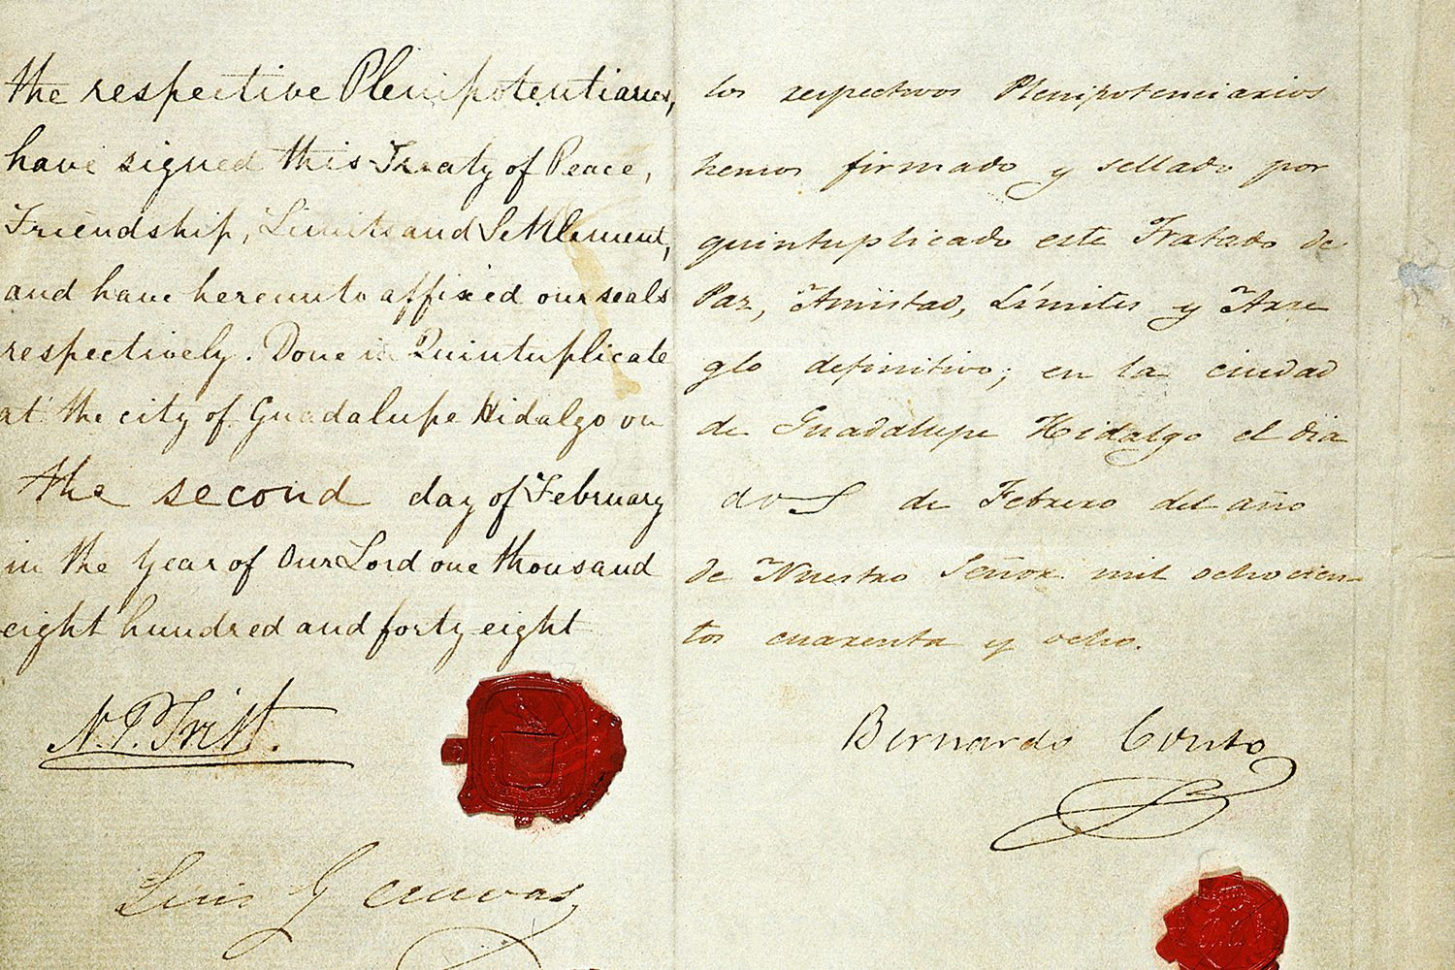 the respective Plenipotentiaries,
have signed this Treaty of Peace,
Friendship, Limits and Settlement,
and have hereunto affixed our seals
respectively. Done in Quintuplicate
at the city of Guadalupe Hidalgo on
the second day of February
in the Year of Our Lord one thousand
eight hundred and forty eight
N.P. Trist.
Luis G Cuevas
los respectivos Plenipotenciarios
hemos firmado y sellado por
quintuplicado este Tratado de
Paz, Amistad, Límites y Arre
glo definitivo; en la ciudad
de Guadalupe Hidalgo el dia
dos de Febrero del año
de Nuestro Señor mil ochocien-
tos cuarenta y ocho.
Bernardo Couto